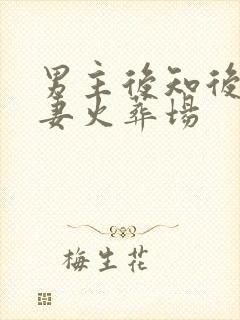 男主後知後
妻火葬場
梅生花